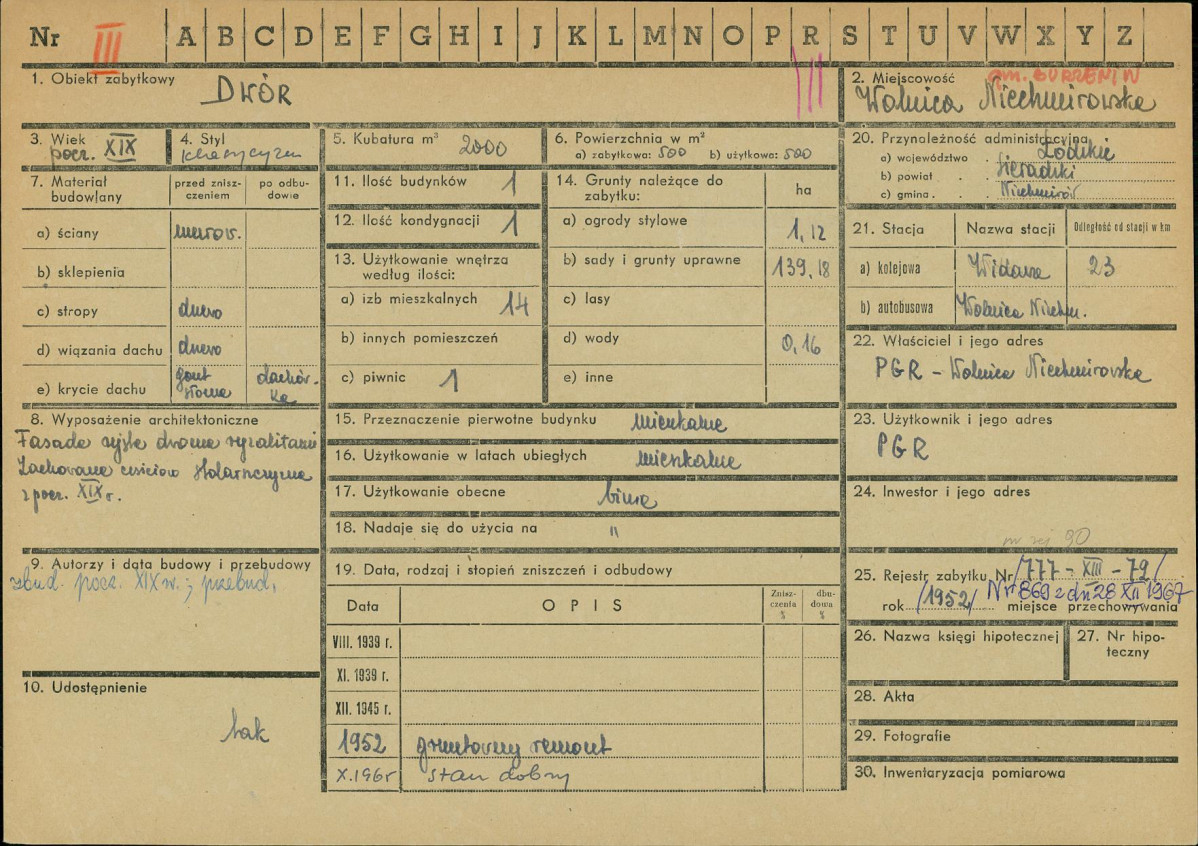 Nr III A B C D E F G H I J K L M N O P R S T U V W X Y Z
1. Obiekt zabytkowy
DWÓR
2. Miejscowość gm. BURZENIN
Wolnica Niechmirowska
3. Wiek
pocz. XIX
4. Styl
klasycyzm
5. Kubatura m³ 2000
6. Powierzchnia w m²
a) zabytkowa: 500 b) użytkowa: 500
20. Przynależność administracyjna
a) województwo Łódzkie
b) powiat Sieradzki
c) gmina Niechmirów
7. Materiał budowlany
przed zniszczeniem
po odbudowie
a) ściany murow.
b) sklepienia
c) stropy drewo
d) wiązania dachu drewo
e) krycie dachu gont słoma dachówka
11. Ilość budynków 1
12. Ilość kondygnacji 1
13. Użytkowanie wnętrza
według ilości:
a) izb mieszkalnych 14
b) innych pomieszczeń
c) piwnic 1
14. Grunty należące do
zabytku:
ha
a) ogrody stylowe 1,12
b) sady i grunty uprawne 139,18
c) lasy
d) wody 0,16
e) inne
21. Stacja Nazwa stacji Odległość od stacji w km
a) kolejowa Widawa 23
b) autobusowa Wolnica Niechm.
22. Właściciel i jego adres
PGR – Wolnica Niechmirowska
8. Wyposażenie architektoniczne
Fasada ujęta dwoma ryzalitami
Zachowana częściowo stolarszczyzna
z pocz. XIX r.
15. Przeznaczenie pierwotne budynku mieszkalne
16. Użytkowanie w latach ubiegłych mieszkalne
17. Użytkowanie obecne biura
18. Nadaje się do użycia na "
23. Użytkownik i jego adres
PGR
24. Inwestor i jego adres
nr rej 90
9. Autorzy i data budowy i przebudowy
zbud. pocz. XIX w.; przebud.
19. Data, rodzaj i stopień zniszczeń i odbudowy
Data OPIS Zniszczenia % dbudowa %
VIII. 1939 r.
XI. 1939 r.
XII. 1945 r.
1952 gruntowny remont
X.1965 stan dobry
25. Rejestr zabytku Nr /777-XIII-79/
Nr 869 z dn 28 XII 1967
rok /1952/ miejsce przechowywania
26. Nazwa księgi hipotecznej
27. Nr hipoteczny
10. Udostępnienie
tak
28. Akta
29. Fotografie
30. Inwentaryzacja pomiarowa